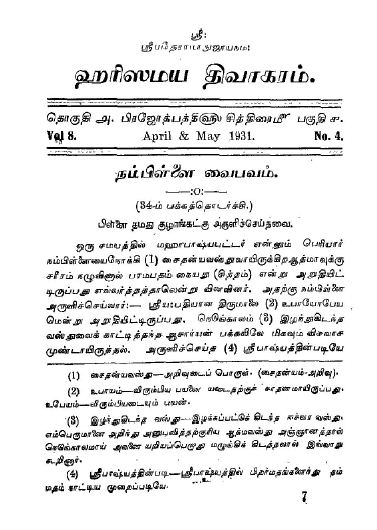 ஸ்ரீ:
ஹரிஸமய திவாகரம்.
தொகுதி அ. பிரஜோத்பத்திஹு சித்திரைமீ பகுதி ச.
Vol 8. April & May 1931. No. 4.
நம்பிள்ளை வைபவம்.
—:o:—
(34-ம் பக்கத்தொடர்ச்சி.)
பிள்ளை தமது குழாங்கட்கு அருளிச்செய்தவை.
ஒரு சமயத்தில் மஹாபாஷ்யபட்டர் என்னும் பெரியார்
நம்பிள்ளையைநோக்கி (1) சைதன்யவஸ்துவாயிருக்கிறஆத்மாவுக்கு
சரீரம் கழுவினால் பரமபதம் கையது (சித்தம்) என்று அறுதியிட்
டிருப்பது எவ்வர்த்தத்தாலென்று வினவினர். அதற்கு நம்பிள்ளை
அருளிச்செய்வார்:— ஸ்ரீயஃபதியான திருமாலை (2) உபாயோபேய
மென்று அறுதியிட்டிருப்பது. நெடுங்காலம் (3) இழந்துகிடந்த
வஸ்துவைக் காட்டித்தந்த ஆசார்யன் பக்கலிலே மிகவும் விசுவாச
முண்டாயிருத்தல். அருளிச்செய்த (4) ஸ்ரீபாஷ்யத்தின்படியே
(1) சைதன்யவஸ்து—அறிவுடைப் பொருள். (சைதன்யம்-அறிவு).
(2) உபாயம்—விரும்பிய பயனை யடைதற்குச் சாதனமாயிருப்பது.
உபேயம்—விரும்பியடையும் பயன்.
(3) இழந்துகிடந்த வஸ்து—இழக்கப்பட்டுக் கிடந்த ஈச்வர வஸ்து,
எம்பெருமானை அறிந்து அனுபவித்தற்குரிய ஆத்மவஸ்து அஞ்ஞானத்தால்
நெடுங்காலமாய் அவனை யறியப்பெறாது மழுங்கிக் கிடத்தலால் இங்வாது
கூறினார்.
(4) ஸ்ரீபாஷ்யத்தின்படி—ஸ்ரீபாஷ்யத்தில் பிறர்மதங்களைர்து தம்
மதம் காட்டிய முறைப்படியே.
7